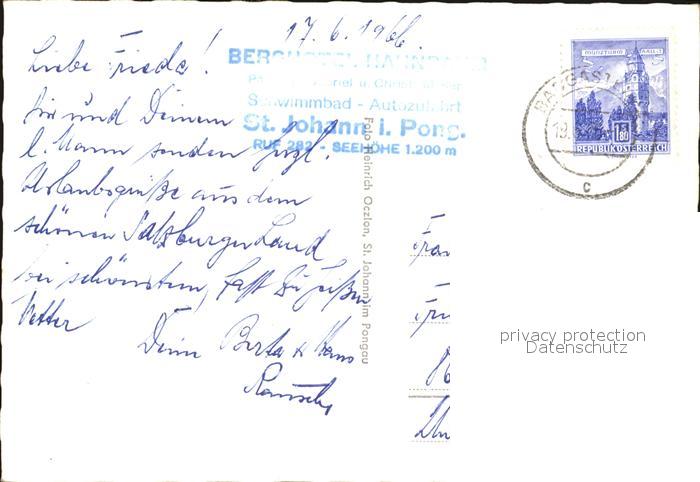 17. 6. 1966.
Liebe Frieda!
Dir und Deinem
l. Mann senden herzl.
Urlaubsgrüße aus dem
schönen Salzburger Land
bei schönstem, fast zu heißen
Wetter
Deine Berta & Hans
BERGHOTEL HAHNBAUM
Schwimmbad - Autozufahrt
St. Johann i. Pong.
RUF 282 - SEEHÖHE 1.200 m
Foto Heinrich Oczlon, St. Johann im Pongau
MÜNZTURM HALL i. T.
1.80
REPUBLIK ÖSTERREICH
BADGASTEIN
c
privacy protection
Datenschutz